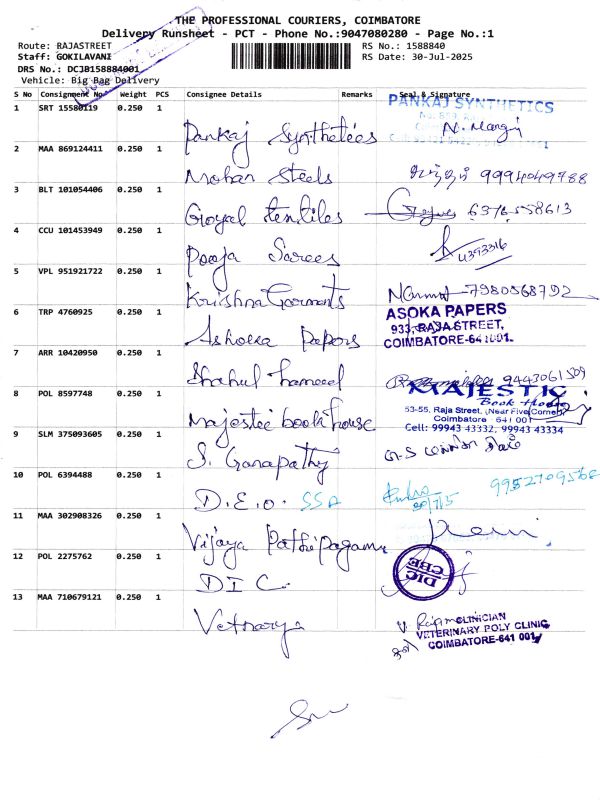 THE PROFESSIONAL COURIERS, COIMBATORE
Delivery Runsheet - PCT - Phone No.:9047080280 - Page No.:1
Route: RAJASTREET
RS No.: 1588840
Staff: GOKILAVANI
RS Date: 30-Jul-2025
DRS No.: DCJB158884001
Vehicle: Big Bag Delivery
S No Consignment No Weight PCS Consignee Details Remarks Seal & Signature
PANKAJ SYNTHETICS
1 SRT 15580119 0.250 1 Pankaj Synthetees
2 MAA 869124411 0.250 1 Mohan Steels 9994049788
3 BLT 101054406 0.250 1 Goyal textiles 6376558613
4 CCU 101453949 0.250 1 Pooja Sarees
5 VPL 951921722 0.250 1 Krishna Garments 7980568792
ASOKA PAPERS
933, RAJA STREET,
COIMBATORE-641001.
6 TRP 4760925 0.250 1 Ashoka Papers
7 ARR 10420950 0.250 1 Shahul hameed 9443061509
MAJESTIC
Book House
53-55, Raja Street, (Near Five Corner)
Coimbatore - 641 001
Cell: 99943 43332, 99943 43334
8 POL 8597748 0.250 1 Majestee book house
9 SLM 375093605 0.250 1 S. Ganapathy
10 POL 6394488 0.250 1 D.E.O. SSA
11 MAA 302908326 0.250 1 Vijaya Pathipagam
DIC
CBE
12 POL 2275762 0.250 1 DIC
13 MAA 710679121 0.250 1 Vetnary
CLINICIAN
VETERINARY POLY CLINIC
COIMBATORE-641 001